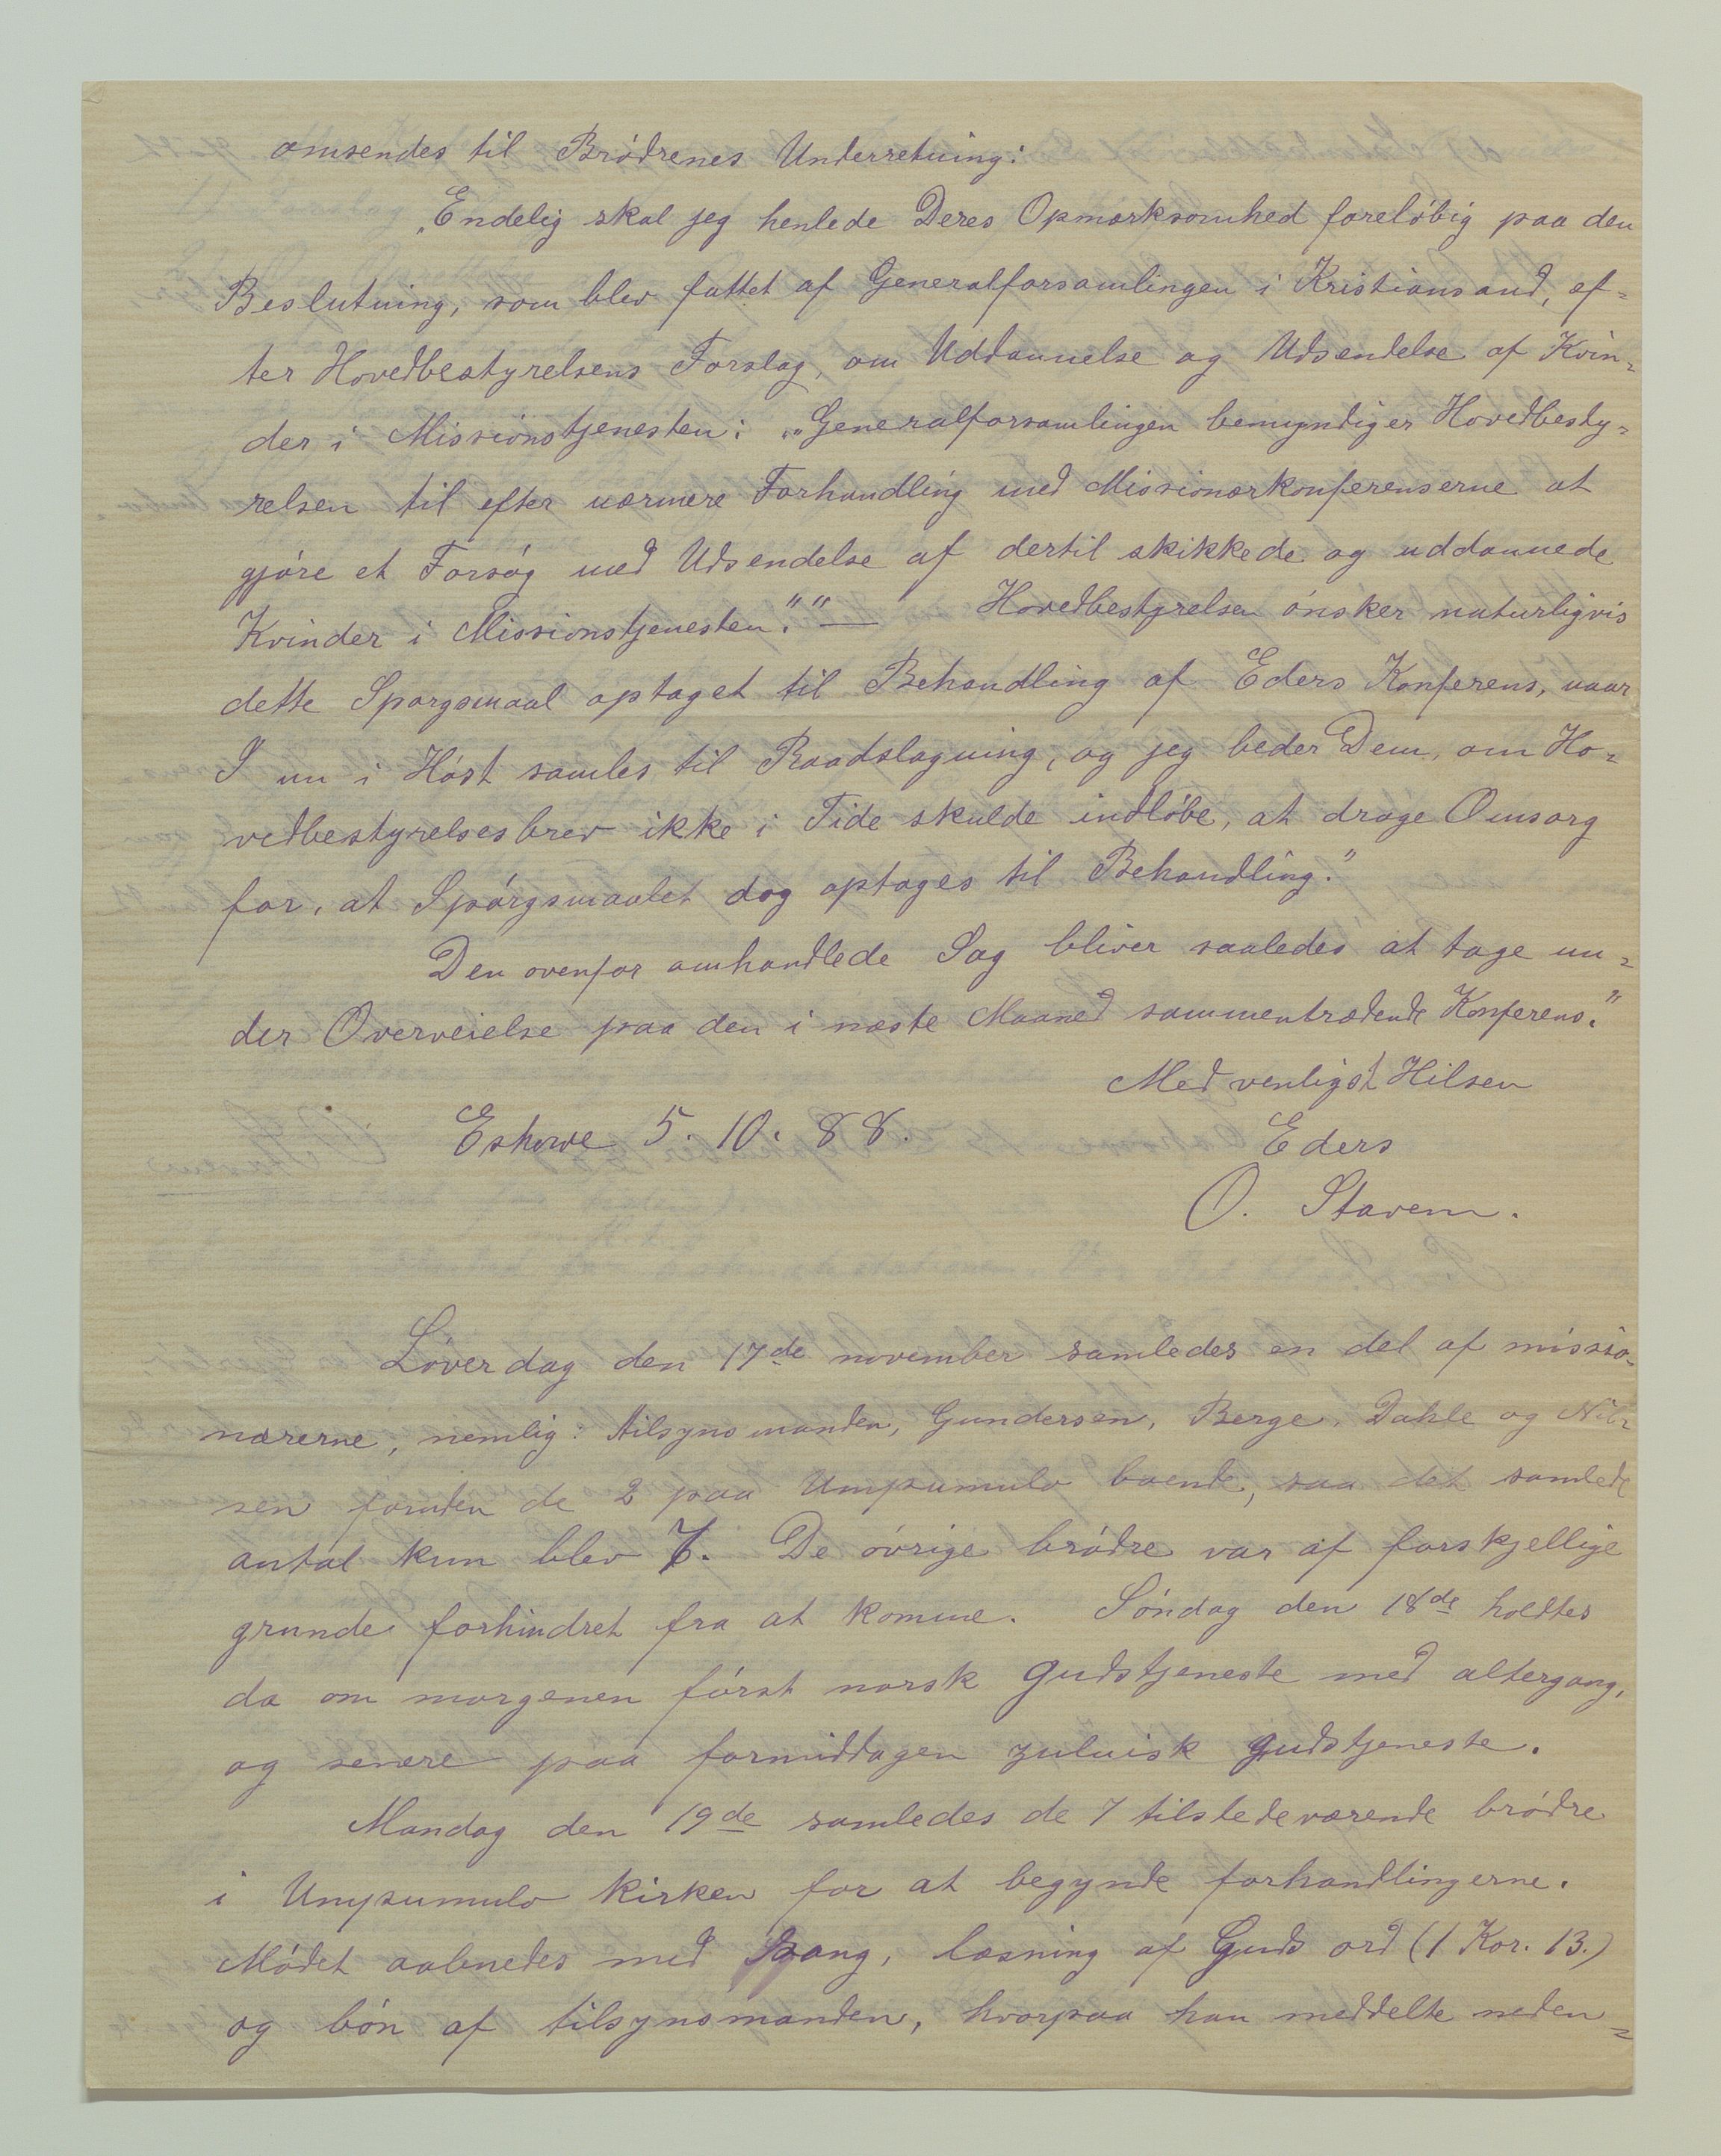 omsendes til Brødrenes Underretning:
„Endelig skal jeg henlede Deres Opmærksomhed foreløbig paa den
Beslutning, som blev fattet af Generalforsamlingen i Kristiansand, ef=
ter Hovedbestyrelsens Forslag, om Uddannelse og Udsendelse af Kvin=
der i Missionstjenesten: „„Generalforsamlingen bemyndiger Hovedbesty=
relsen til efter nærmere Forhandling med Missionærkonferenserne at
gjøre et Forsøg med Udsendelse af dertil skikkede og uddannede
Kvinder i Missionstjenesten."" — Hovedbestyrelsen ønsker naturligvis
dette Spørgsmaal optaget til Behandling af Eders Konferens, naar
I nu i Høst samles til Raadslagning, og jeg beder Dem, om Ho=
vedbestyrelsesbrev ikke i Tide skulde indløbe, at drage Omsorg
for, at Spørgsmaalet dog optages til Behandling."
Den ovenfor omhandlede Sag bliver saaledes at tage un=
der Overveielse paa den i næste Maaned sammentrædende Konferens."
Med venligst Hilsen
Eshowe 5. 10. 88. Eders
O. Stavem.
Løverdag den 17de november samledes en del af missio=
nærerne, nemlig: tilsynsmanden, Gundersen, Berge, Dahle og Nil=
sen foruden de 2 paa Umpumulo boende, saa det samlede
antal kun blev 7. De øvrige brødre var af forskjellige
grunde forhindret fra at komme. Søndag den 18de holdtes
da om morgenen først norsk gudstjeneste med altergang,
og senere paa formiddagen zuluisk gudstjeneste.
Mandag den 19de samledes de 7 tilstedeværende brødre
i Umpumulo kirken for at begynde forhandlingerne.
Mødet aabnedes med sang, læsning af Guds ord (1 Kor. 13.)
og bøn af tilsynsmanden, hvorpaa han meddelte neden=